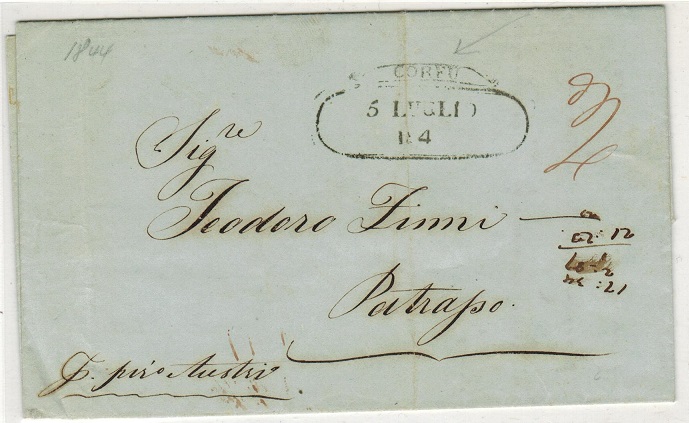 1844
CORFU
5 LUGLIO
184
Sig.re
Teodoro Zinni
02:12
:21
Patrasso.
p. piro Austro